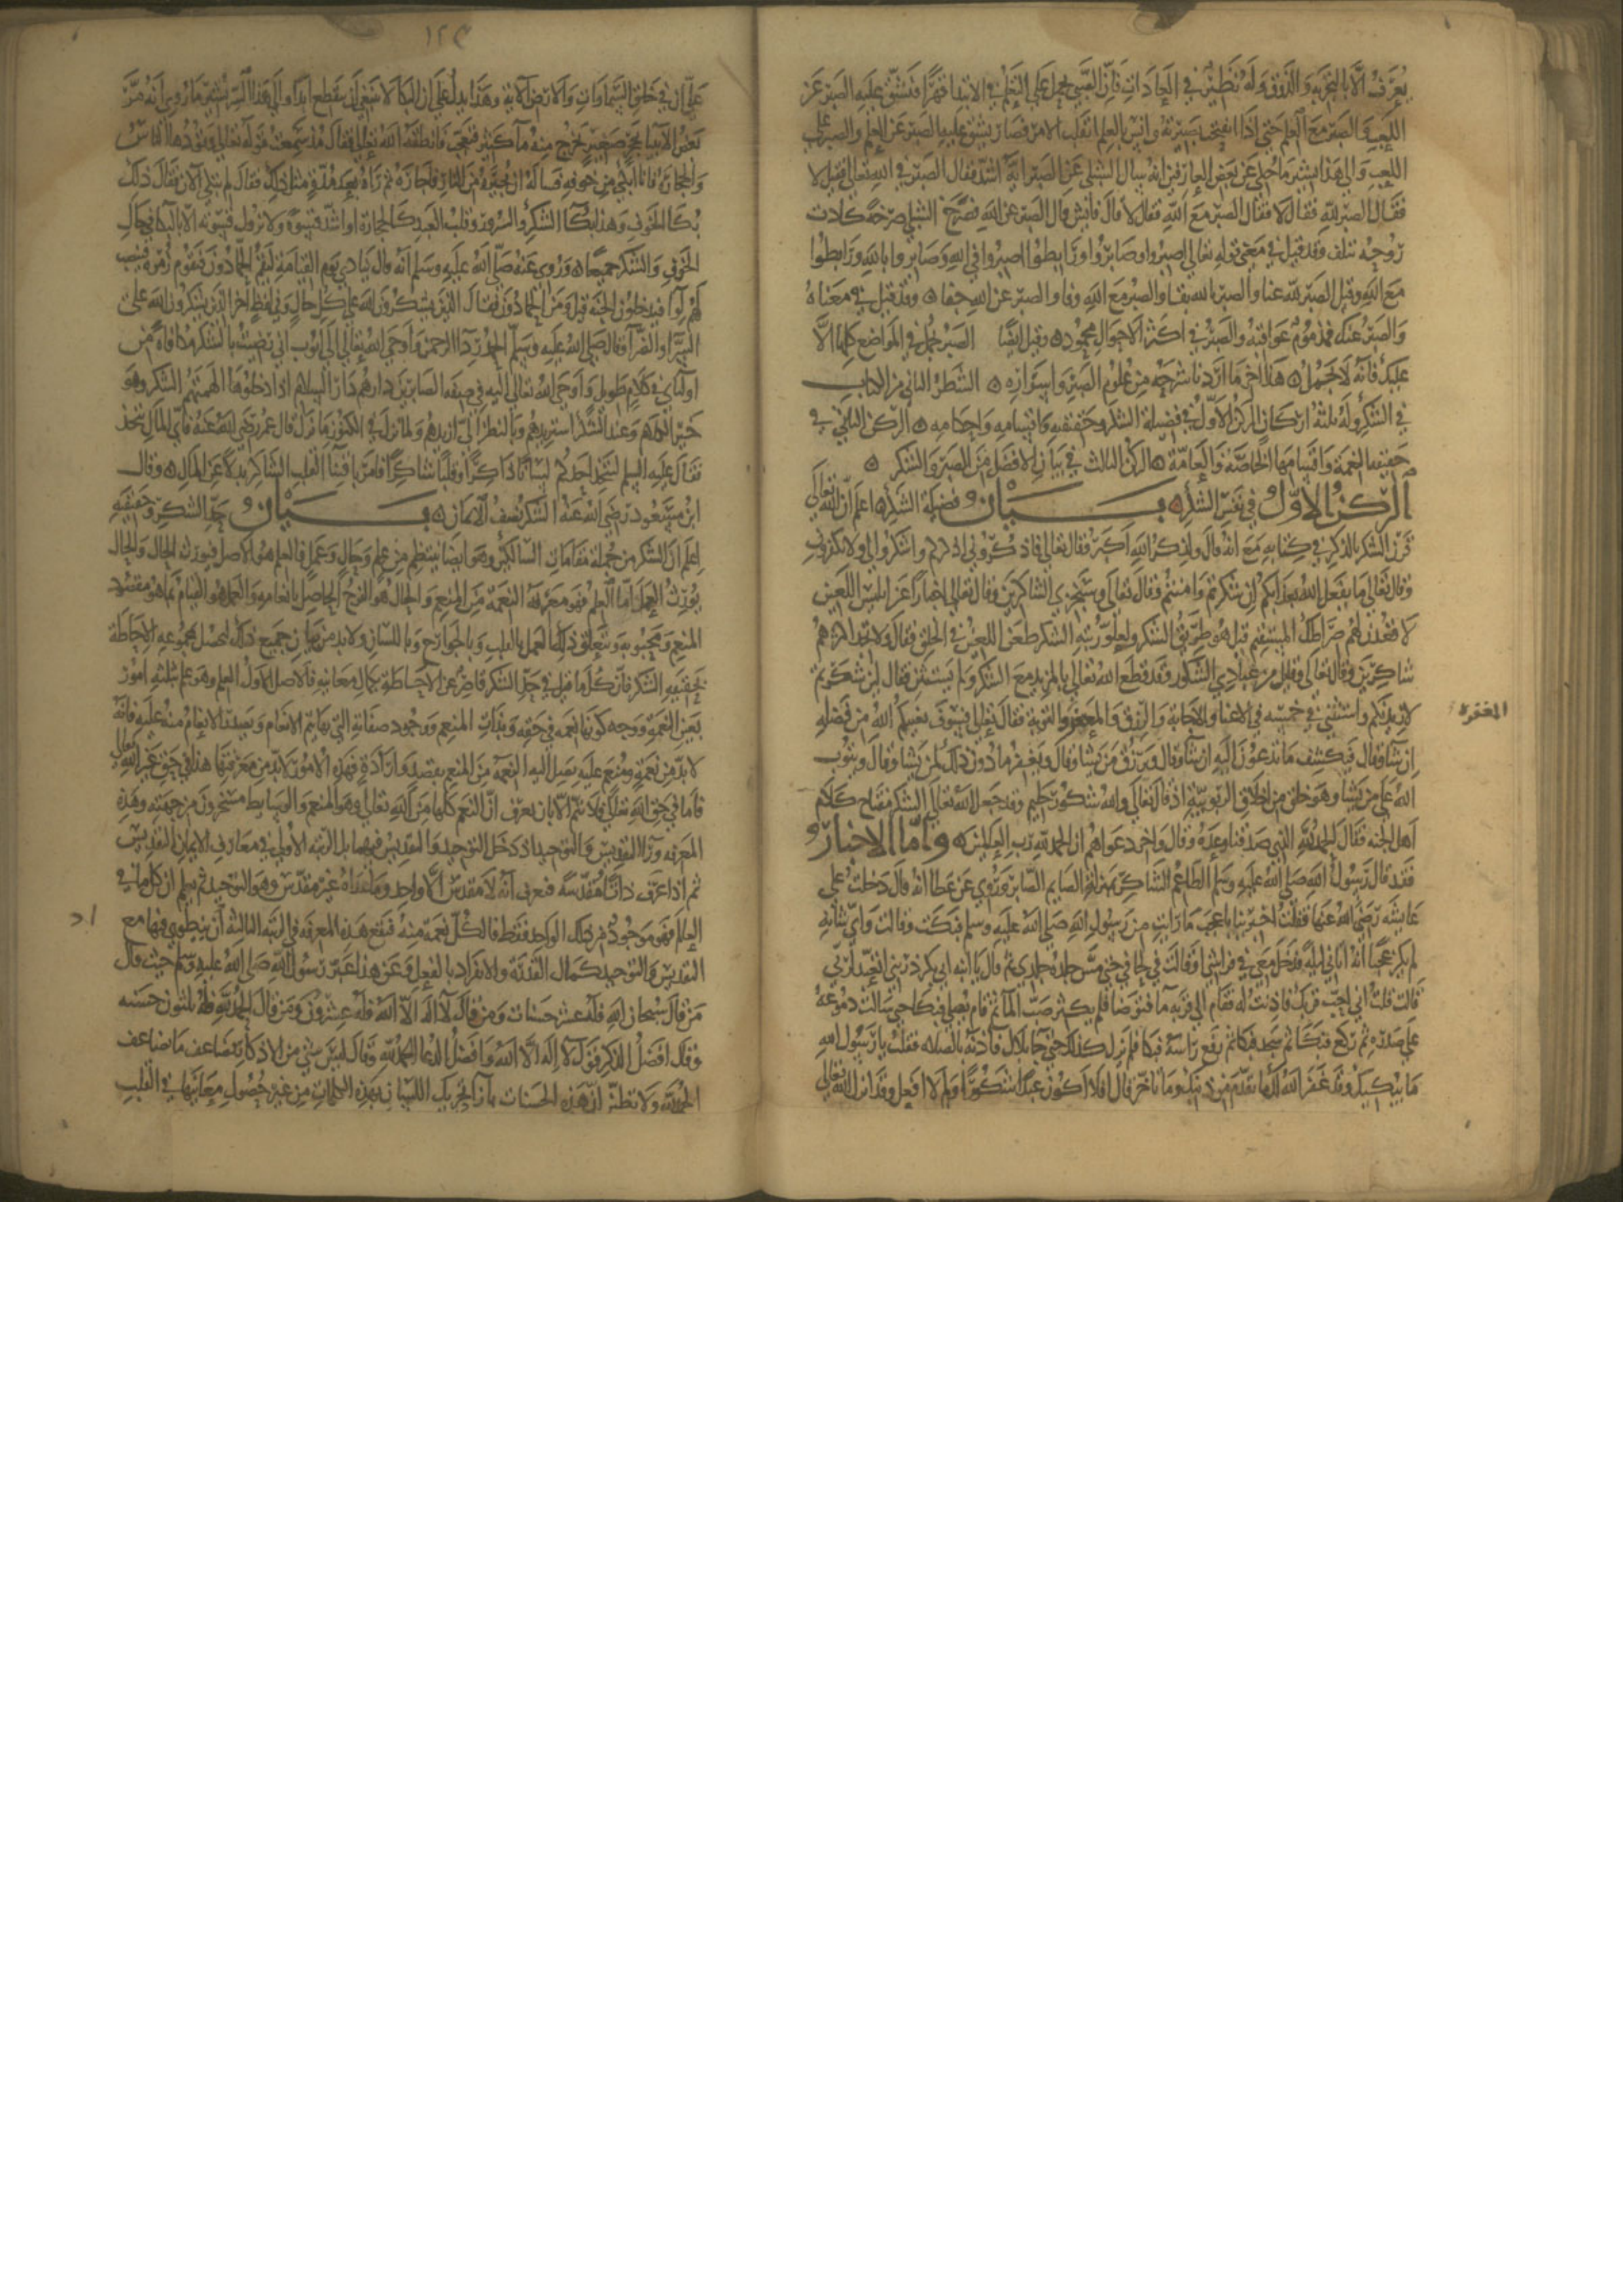 يعرف الا بالتجربة والذوق وله نظير في العادات فان الصبي يحمل على التعلم في الابتدا قهرا فيشق عليه الصبر عن
اللعب والصبر مع العلم حتى اذا انفتحت بصيرته وانس بالعلم انقلب الامر فصار يشق عليه الصبر عن العلم والصبر على
اللعب والى هذا يشير ما حكي عن بعض العارفين انه سال الشبلي عن الصبر ايه اشد فقال الصبر في الله تعالى فقال لا
فقال الصبر لله فقال لا فقال الصبر مع الله فقال لا قال فايش قال الصبر عن الله فصرخ الشبلي صرخة كادت
روحه تتلف وقد قيل في معنى قوله تعالى اصبروا وصابروا ورابطوا اصبروا في الله وصابروا بالله ورابطوا
مع الله وقيل الصبر لله عنا والصبر بالله بقا والصبر مع الله وفا والصبر عن الله جفا وقد قيل في معناه
والصبر عنك فمذموم عواقبه والصبر في اكثر الاحوال محمود وقيل ايضا الصبر يجمل في المواضع كلها الا
عليك فانه لا يجمل هذا اخر ما اردنا شرحه من علوم الصبر واسراره الشطر الثاني من الكتاب
في الشكر وله ثلثة اركان الركن الاول في فضيلة الشكر وحقيقته واقسامه واحكامه الركن الثاني في
حقيقة النعمة واقسامها الخاصة والعامة الركن الثالث في بيان الافضل من الصبر والشكر
الركن الاول في نفس الشكر بيان فضيلة الشكر اعلم ان الله تعالى
قرن الشكر بالذكر في كتابه مع انه قال ولذكر الله اكبر فقال تعالى فاذكروني اذكركم واشكروا لي ولا تكفرون
وقال تعالى ما يفعل الله بعذابكم ان شكرتم وامنتم وقال تعالى وسنجزي الشاكرين وقال تعالى اخبارا عن ابليس اللعين
لاقعدن لهم صراطك المستقيم قيل هو طريق الشكر ولعلو رتبة الشكر طعن اللعين في الخلق فقال ولا تجد اكثرهم
شاكرين وقال تعالى وقليل من عبادي الشكور وقد قطع الله تعالى بالمزيد مع الشكر ولم يستثن فقال لئن شكرتم
لازيدنكم واستثنى في خمسة في الاغنا والاجابة والرزق والمغفرة والتوبة فقال تعالى فسوف يغنيكم الله من فضله
المغفرة
ان شا وقال فيكشف ما تدعون اليه ان شا وقال ويرزق من يشا وقال ويغفر ما دون ذلك لمن يشا وقال ويتوب
الله على من يشا وهو خلق من اخلاق الربوبية اذ قال تعالى والله شكور حليم وقد جعل الله تعالى الشكر مفتاح كلام
اهل الجنة فقال الحمد لله الذي صدقنا وعده وقال واخر دعواهم ان الحمد لله رب العالمين واما الاخبار
فقد قال رسول الله صلى الله عليه وسلم الطاعم الشاكر بمنزلة الصايم الصابر وروي عن عطا انه قال دخلت على
عايشة رضي الله عنها فقلت اخبرينا باعجب ما رايت من رسول الله صلى الله عليه وسلم فبكت وقالت واي شانه
لم يكن عجبا انه اتاني ليلة فدخل معي في فراشي او قالت في لحافي حتى مس جلده جلدي ثم قال يا ابنة ابي بكر ذريني اتعبد لربي
قالت قلت اني احب قربك فاذنت له فقام الى قربة ما فتوضا فلم يكثر صب الما ثم قام يصلي فبكا حتى سالت دموعه
على صدره ثم ركع فبكا ثم سجد فبكا ثم رفع راسه فبكا فلم يزل كذلك حتى جا بلال فآذنه بالصلاه فقلت يا رسول الله
ما يبكيك وقد غفر الله لك ما تقدم من ذنبك وما تاخر قال افلا اكون عبدا شكورا ولم لا افعل وقد انزل الله تعالى
١٢٤
علي ان في خلق السماوات والارض الاية وهذا يدل على ان البكا لا ينبغي ان ينقطع ابدا والى هذا السر يشير ما روي انه مر
بعض الانبيا بحجر صغير يخرج منه ما كثير فتعجب فانطقه الله تعالى فقال منذ سمعت قوله تعالى وقودها الناس
والحجارة فانا ابكي من خوفه فساله ان يجيره من النار فاجاره ثم راه بعد مدة مثل ذلك فقال لم تبكي الان فقال ذلك
بكا الخوف وهذا بكا الشكر والسرور وقلب العبد كالحجارة او اشد قسوة ولا تزول قسوته الا بالبكا في حال
الخوف والشكر جميعا وروي عنه صلى الله عليه وسلم انه قال ينادى يوم القيامة ليقم الحمادون فتقوم زمرة فينصب
لهم لوا فيدخلون الجنة قيل ومن الحمادون فقال الذين يشكرون الله على كل حال وفي لفظ اخر الذين يشكرون الله على
السرا والضرا وقال صلى الله عليه وسلم الحمد ردا الرحمن واوحى الله تعالى الى ايوب اني رضيت بالشكر مكافاة من
اوليائي في كلام طويل واوحى الله تعالى اليه في صفة الصابرين دارهم دار السلام اذا دخلوها الهمتهم الشكر وهو
خير الكلام وعند الشكر استزيدهم وبالنظر الي ازيدهم ولما نزل في الكنوز ما نزل قال عمر رضي الله عنه فاي المال نتخذ
فقال عليه السلم ليتخذ احدكم لسانا ذاكرا وقلبا شاكرا فامر باقتنا القلب الشاكر بدلا عن المال وقال
ابن مسعود رضي الله عنه الشكر نصف الايمان بيان حد الشكر وحقيقته
اعلم ان الشكر من جملة مقامات السالكين وهو ايضا ينتظم من علم وحال وعمل فالعلم هو الاصل فيورث الحال والحال
يورث العمل اما العلم فهو معرفة النعمة من المنعم والحال هو الفرح الحاصل بانعامه والعمل هو القيام بما هو مقصود
المنعم ومحبوبه ويتعلق ذلك العمل بالقلب وبالجوارح وباللسان ولا بد من بيان جميع ذلك ليحصل بمجموعه الاحاطة
بحقيقة الشكر فان كل ما قيل في حد الشكر قاصر عن الاحاطة بكمال معانيه فالاصل الاول العلم وهو علم بثلثة امور
بعين النعمة ووجه كونها نعمة في حقه وبذات المنعم ووجود صفاته التي بها يتم الانعام ويصدر الانعام منه عليه فانه
لا بد من نعمة ومنعم ومنعم عليه تصل اليه النعمة من المنعم بقصد وارادة فهذه الامور لا بد من معرفتها هذا في حق غير الله تعالى
فاما في حق الله تعالى فلا يتم الا بان يعرف ان النعم كلها من الله تعالى وهو المنعم والوسايط مسخرون من جهته وهذه
المعرفة ورا التقديس والتوحيد اذ دخل التوحيد والتقديس فيها بل الرتبة الاولى في معارف الايمان التقديس
ثم اذا عرف ذاتا مقدسة فيعرف انه لا مقدس الا واحد وما عداه غير مقدس وهو التوحيد ثم يعلم ان كل ما في
العالم فهو موجود من ذلك الواحد فقط فالكل نعمة منه فتقع هذه المعرفة في الرتبة الثالثة اذ ينطوي فيها مع
التقديس والتوحيد كمال القدرة والانفراد بالفعل وعن هذا عبر رسول الله صلى الله عليه وسلم حيث قال
من قال سبحان الله فله عشر حسنات ومن قال لا اله الا الله فله عشرون ومن قال الحمد لله فله ثلثون حسنة
وقال افضل الذكر قول لا اله الا الله وافضل الدعا الحمد لله وقال ليس شي من الاذكار يضاعف ما يضاعف
الحمد لله ولا تظنن ان هذه الحسنات بازا تحريك اللسان بهذه الكلمات من غير حصول معانيها في القلب